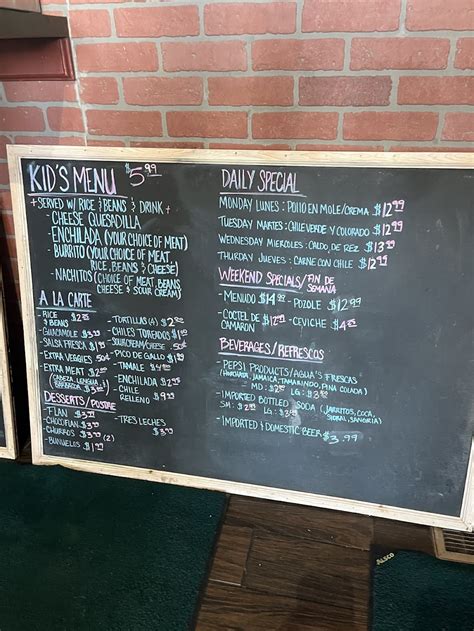 KID'S MENU $5.99
+ SERVED W/ RICE & BEANS & DRINK +
- CHEESE QUESADILLA
- ENCHILADA (YOUR CHOICE OF MEAT)
- BURRITO (YOUR CHOICE OF MEAT,
RICE, BEANS & CHEESE)
- NACHITOS (CHOICE OF MEAT, BEANS
CHEESE & SOUR CREAM)
A LA CARTE
RICE & BEANS
- GUACAMOLE
- SALSA FRESCA
- EXTRA VEGGIES 50¢
- EXTRA MEAT $2
(CABEZA, LENGUA,
BARBACOA $3
- TORTILLAS (4)
- CHILES TOREADOS
- SOUR CREAM/CHEESE 50¢
- PICO DE GALLO
- TAMALE
- ENCHILADA
- CHILE
RELLENO
DESSERTS/POSTRE
- FLAN
- CHOCOFLAN
- CHURROS (2)
- BUNUELOS
- TRES LECHES
DAILY SPECIAL
MONDAY LUNES: POLLO EN MOLE/CREMA $12.99
TUESDAY MARTES: CHILE VERDE Y COLORADO $12.99
WEDNESDAY MIERCOLES: CALDO DE REZ $13.99
THURSDAY JUEVES: CARNE CON CHILE $12.99
WEEKEND SPECIALS/ FIN DE SEMANA
- MENUDO $14.99 - POZOLE $12.99
- COCTEL DE CAMARON $12.99 - CEVICHE
BEVERAGES/REFRESCOS
- PEPSI PRODUCTS/AGUA'S FRESCAS
(HORCHATA, JAMAICA, TAMARINDO, PINA COLADA)
MD: LG:
- IMPORTED BOTTLED SODA (JARRITOS, COCA,
SIDRAL, SANGRIA)
SM: LG:
- IMPORTED & DOMESTIC BEER $3.99
ALSCO